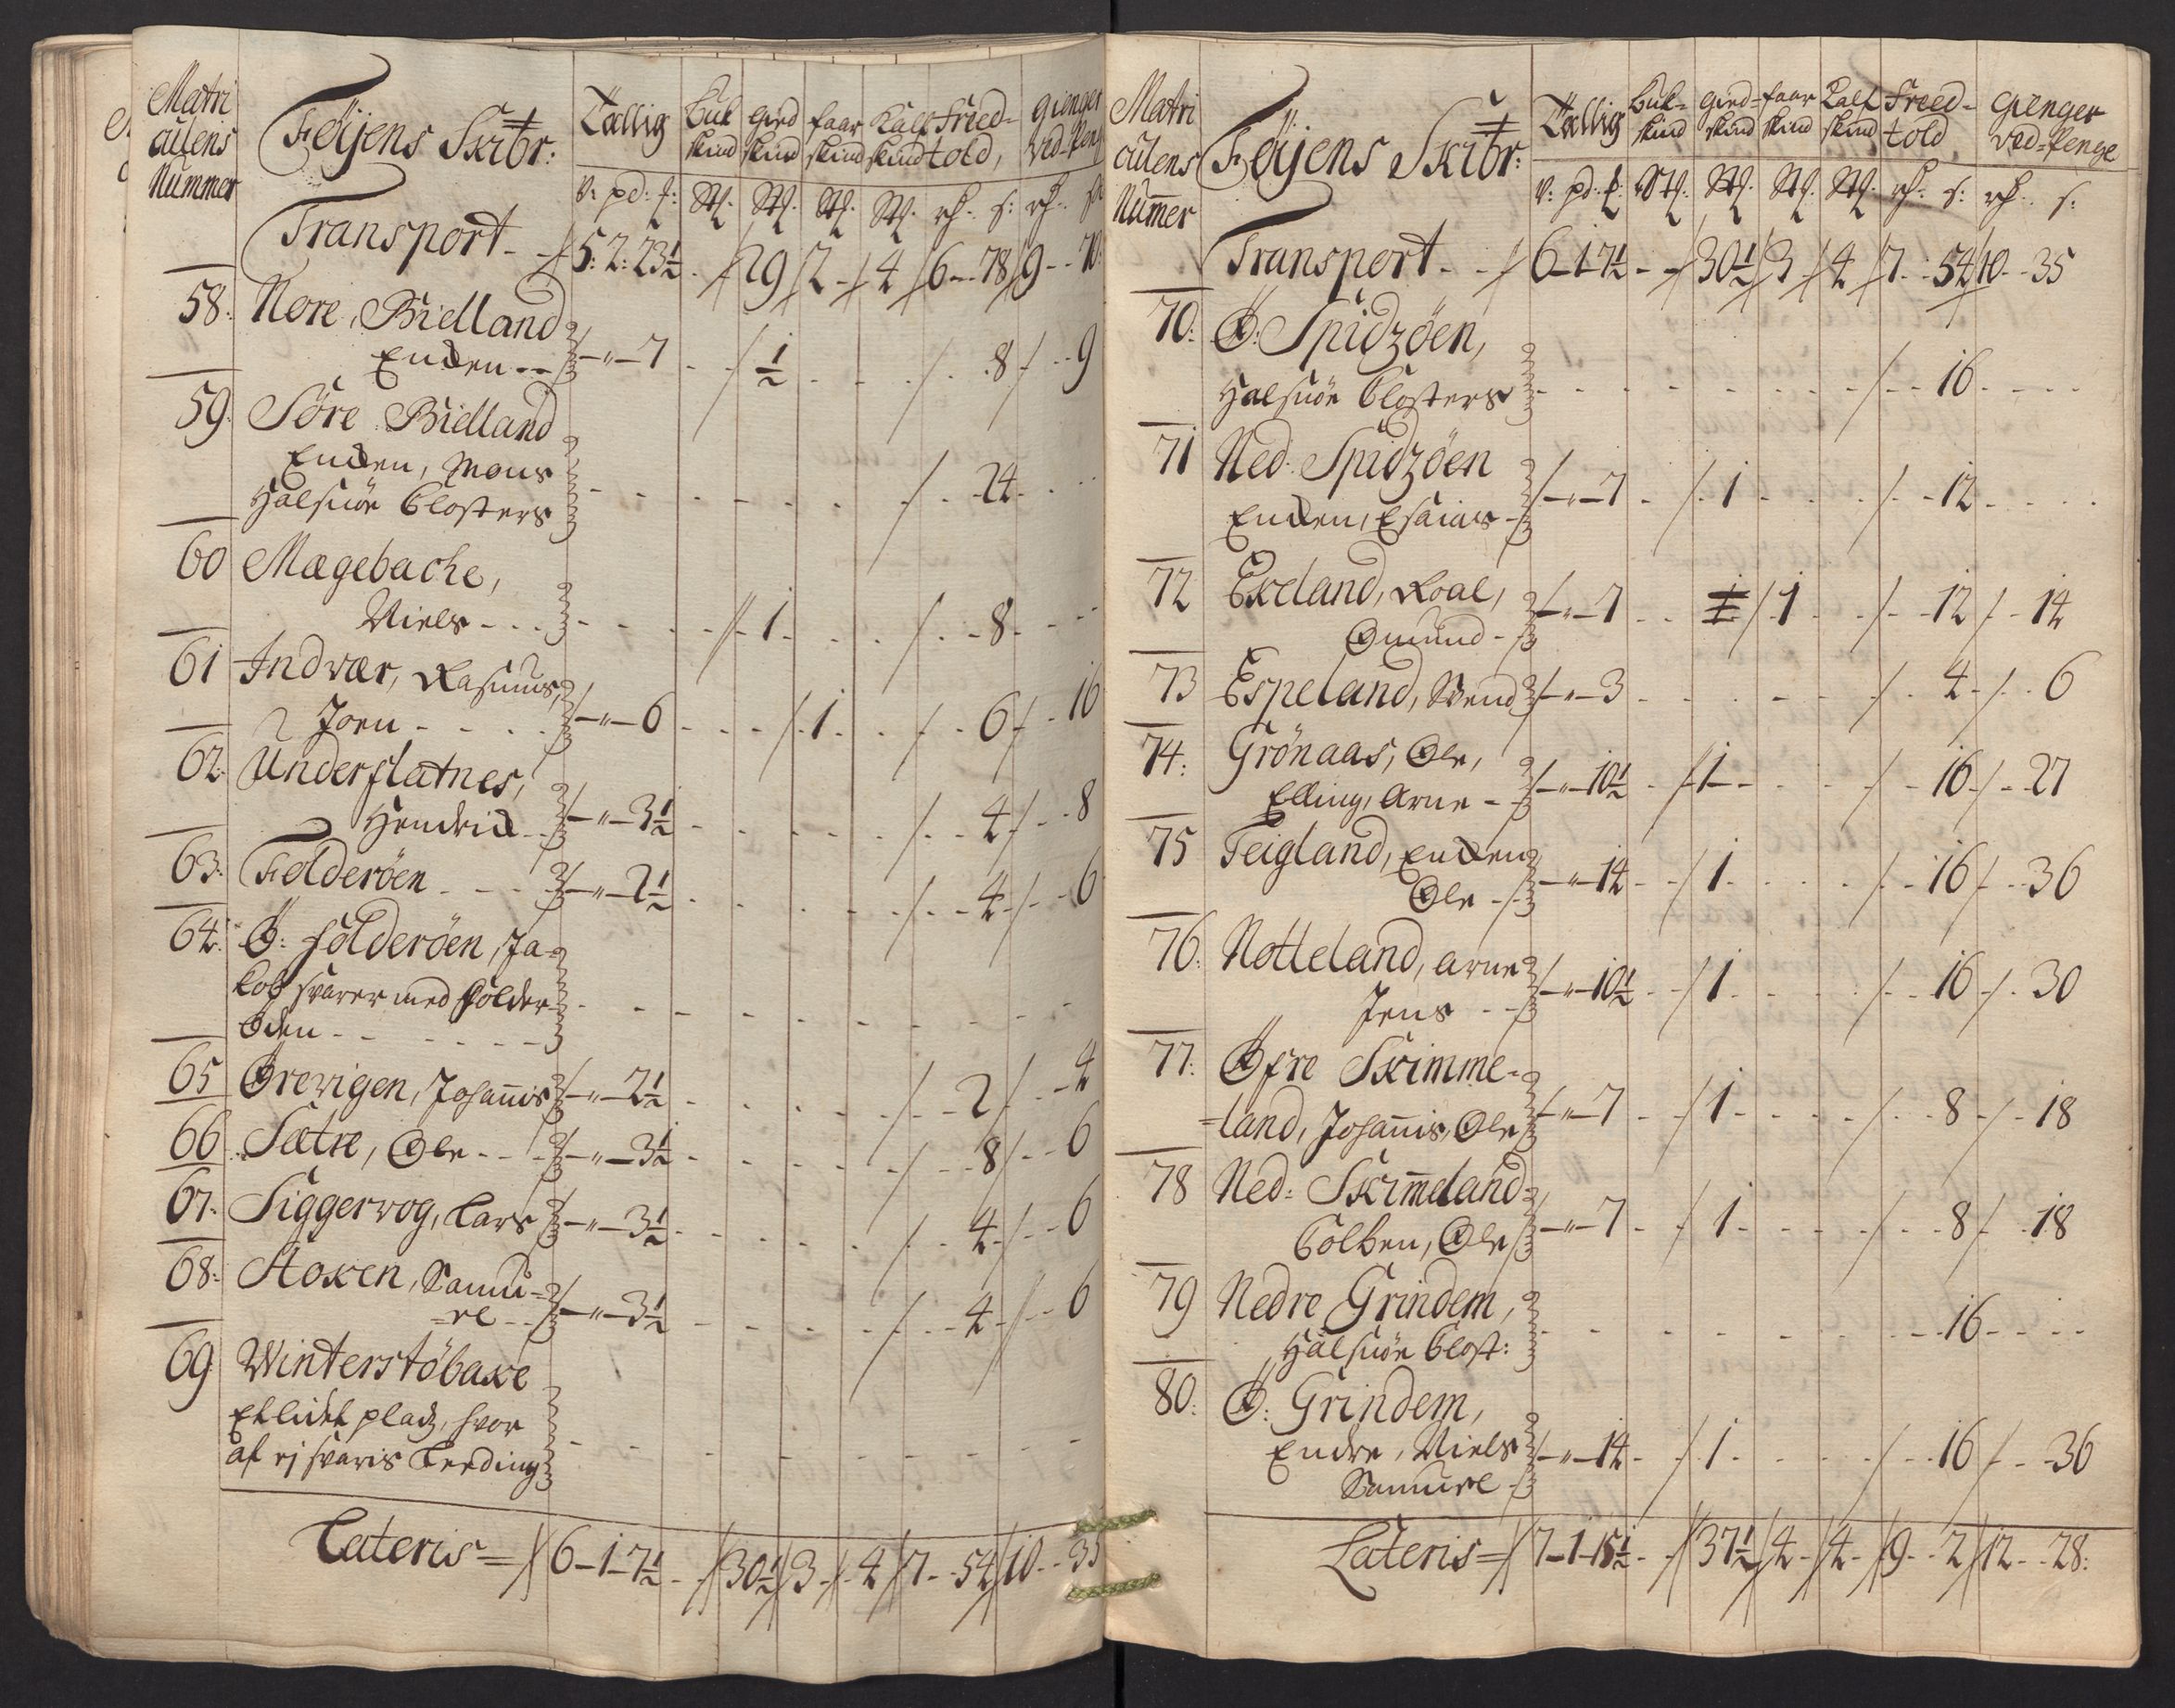 Matri
culens
Nummer
Føÿens Skibr:
Tællig
Buk
skind
giæd
skind
faar
skind
Kalf
skind
Freed-
told,
gienger
ved-Peng
v: pd: f: Stf: Stf: Stf: Stf: rf: s: rf: s:
Transport - - 5: 2: 23½ - 29 2 - 4 6 - 78 9 - 70
58: Nore, Bielland
Enken - - - " - 7 - ½ - - - 8 - 9
59: Søre Bielland
Enken, Mons
Halsnøe Closters - - - - - 24 - - -
60 Mægebache,
Niels - - - - - - 1 - - - 8 - - -
61 Indvær, Rasmus,
Joen - - - - - " - 6 - - - 1 - - - 6 - 16
62: Underslatnes,
Hendrick - - - " - 3½ - - - - - 4 - 8
63: Folderøen - - - - " - 2½ - - - - - 4 - 6
64: Ø: Folderøen, Ja-
kob svarer med Folder-
øden - - - - - -
65 Ørevigen, Johannis - " - 2½ - - - - 2 - 4
66 Sætre, Ole - - - - " - 3½ - - - - 8 - 6
67: Siggervog, Lars - " - 3½ - - - - 4 - 6
68: Stoxen, Samu-
=el - - - " - 3½ - - - - 4 - 6
69 Winterstøbaxe
Et lidet pladz, hvor
af ej svaris Leeding - - - - - - -
Lateris = 6 - 1 - 7½ - 30½ 3 - 4 7 - 54 10 - 35
Matri
culens
Numer
Føÿens Skibr:
Tællig
Buk-
skind
giæd-
skind
faar
skind
Kalf
skind
Freed-
told
gienger
ved-Penge
v: pd: f: Stf: Stf: Stf: Stf: rf: s: rf: s:
Transport - - 6 - 1 - 7½ - - 30½ 3 4 7 - 54 10 - 35
70: Ø: Spidzøen,
Halsnøe Closters - - - - - - 16 - - -
71 Ned: Spidzøen
Enken, Esaias - " - 7 - 1 - - - 12 - - -
72 Exeland, Roal,
Omund - - " - 7 - - 1 - - 12 - 14
73 Espeland, Svend - " - 3 - - - - 4 - 6
74: Grønaas, Ole,
Elling, Arne - - " - 10½ - 1 - - - 16 - 27
75 Teigland, Enken
Ole - - " - 14 - 1 - - - 16 - 36
76: Notteland, Arne
Jens - - - " - 10½ - 1 - - - 16 - 30
77: Øfre Skimme-
=land, Johannis, Ole - " - 7 - 1 - - - 8 - 18
78 Ned: Skimeland
Colben, Ole - " - 7 - 1 - - - 8 - 18
79 Nedre Grindem,
Halsnøe Clost: - - - - - - 16 - - -
80: Ø: Grindem,
Endre, Niels
Samuel - - " - 14 - 1 - - - 16 - 36
Lateris = 7 - 1 - 15½ - 37½ 4 - 4 - 9 - 2 12 - 28: